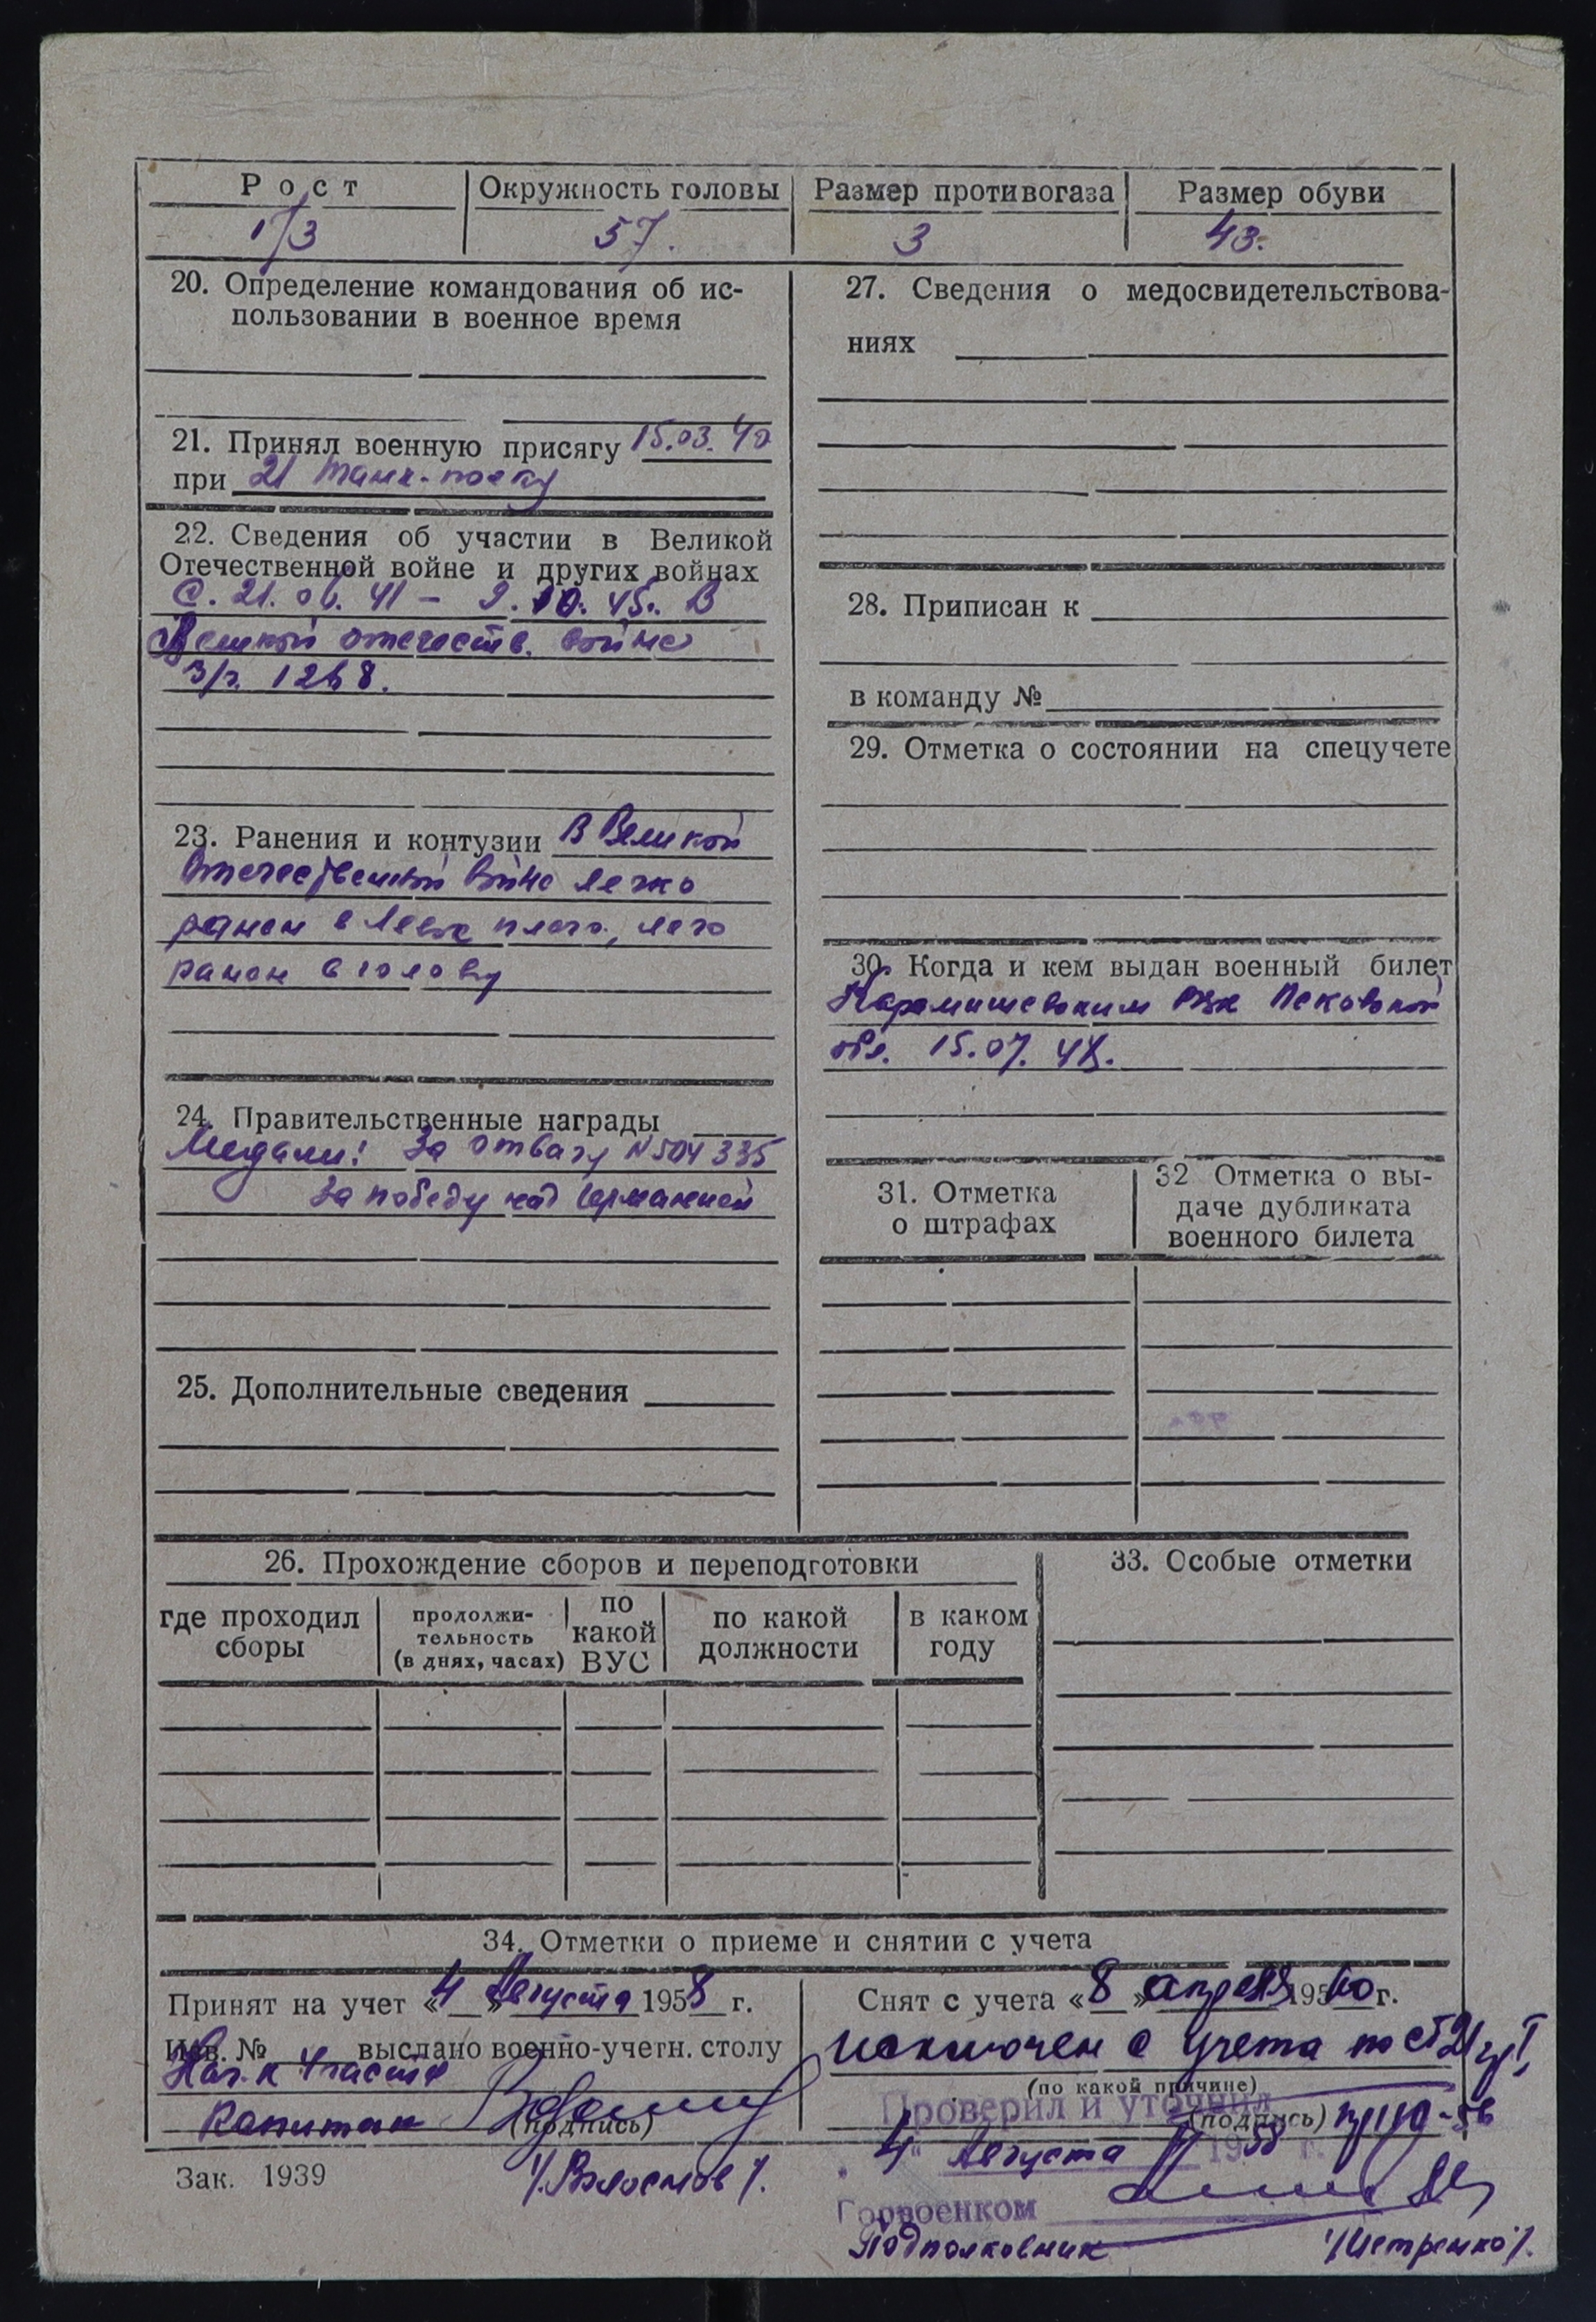 Рост Окружность головы Размер противогаза Размер обуви
173 57. 3 43.
20. Определение командования об ис-
пользовании в военное время
21. Принял военную присягу 15.03.40
при 21 танк. полку
22. Сведения об участии в Великой
Отечественной войне и других войнах
С. 21.06.41 – 9.10.45г. В
Великой отечеств. войне
з/г. 1268.
23. Ранения и контузии В Великой
Отечественной войне легко
ранен в левое плечо, легко
ранен в голову
24. Правительственные награды
Медали: За отвагу N 504335
За победу над Германией
25. Дополнительные сведения
27. Сведения о медосвидетельствова-
ниях
28. Приписан к
в команду №
29. Отметка о состоянии на спецучете
30. Когда и кем выдан военный билет
Карамышевским РВК Псковской
обл. 15.07.48.
31. Отметка
о штрафах
32 Отметка о вы-
даче дубликата
военного билета
26. Прохождение сборов и переподготовки
где проходил
сборы
продолжи-
тельность
(в днях, часах)
по
какой
ВУС
по какой
должности
в каком
году
33. Особые отметки
34. Отметки о приеме и снятии с учета
Принят на учет «4» Августа 1958 г.
Изв. № выслано военно-учетн. столу
Нач. 4 части
капитан (подпись)
Зак. 1939
Снят с учета «8» апреля 1960 г.
исключен с учета по ст 21 гр I,
(по какой причине)
Проверил и уточнил
(подпись)
4 Августа 1958 г.
Горвоенком
Подполковник /Петренко/.